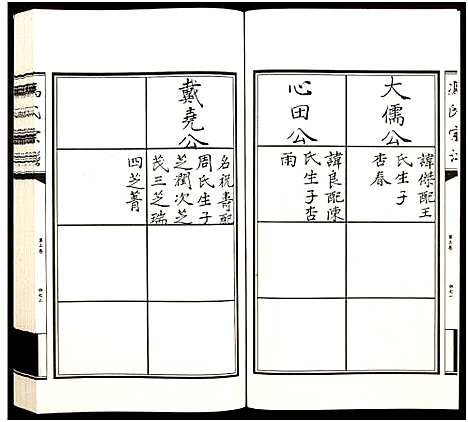 大儒公
諱傑配王
氏生子
杏春
心田公
諱良配陳
氏生子杏
雨
戴堯公
名稅壽配
周氏生子
芝潤次芝
茂三芝瑞
四芝菁